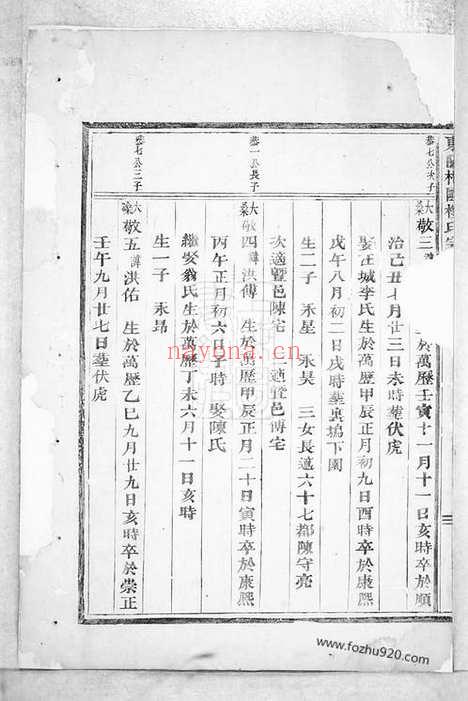 恭七公次子
大梁 敬三 於萬歷壬寅十一月十一日亥時卒於順
治己丑七月廿三日未時葬伏虎
娶在城李氏生於萬歷甲辰正月初九日酉時卒於康熙
戊午八月初二日戌時葬裏塢下園
生二子 永星 永昊 三女長適六十七都陳守亮
次適曁邑陳宅 適曁邑傅宅
恭一公長子
大梁 敬四諱洪傅 生於萬歷甲辰正月二十日寅時卒於康熙
丙午正月初六日子時 娶陳氏
繼娶翁氏生於萬歷丁未六月十一日亥時
生一子 永昂
恭七公三子
大梁 敬五諱洪佑 生於萬歷乙巳九月廿九日亥時卒於崇正
壬午九月廿七日葬伏虎
nayona.cn
www.fozhu920.com